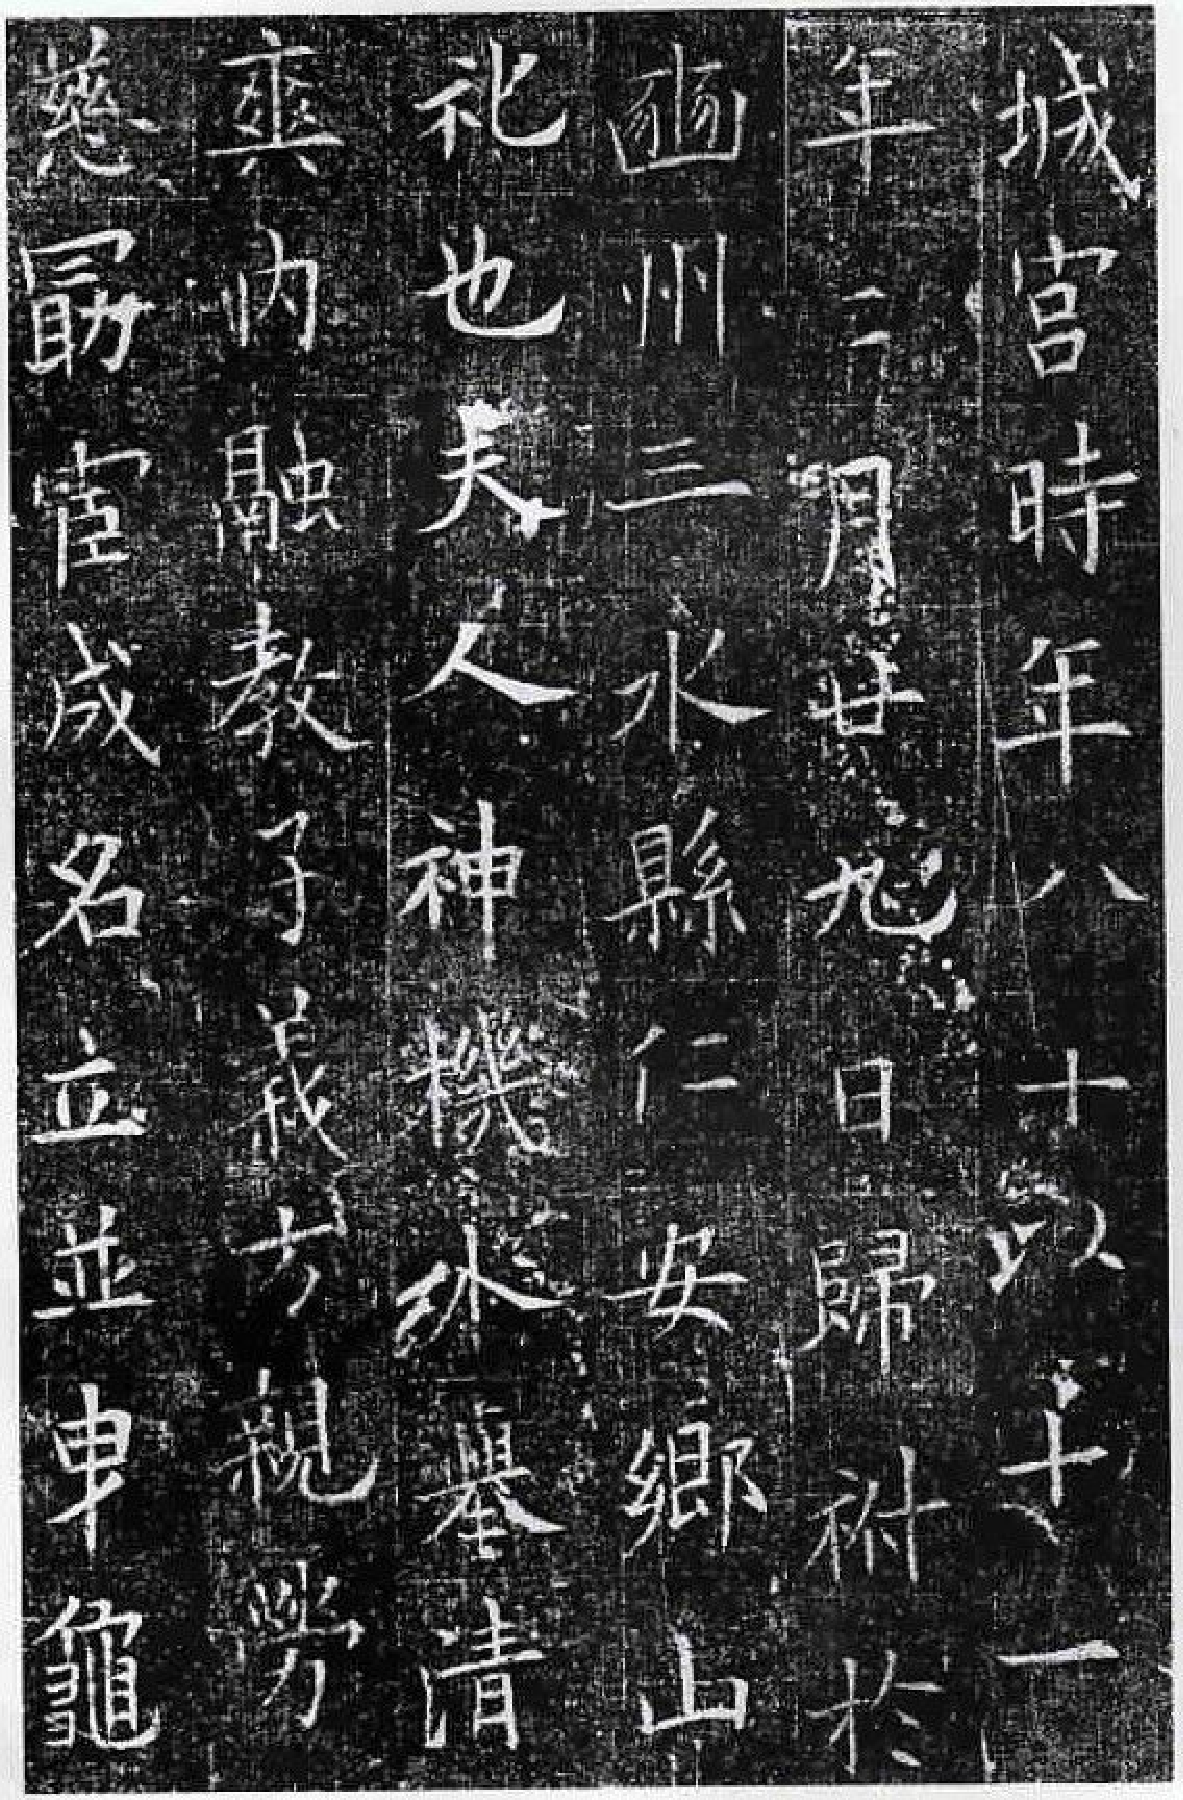 城宮時年八十以十一
年二月廿九日歸祔於
豳州三水縣仁安鄉山
礼也夫人神機外舉清
爽內融教子義方親勞
慈勗宦成名立並車龜